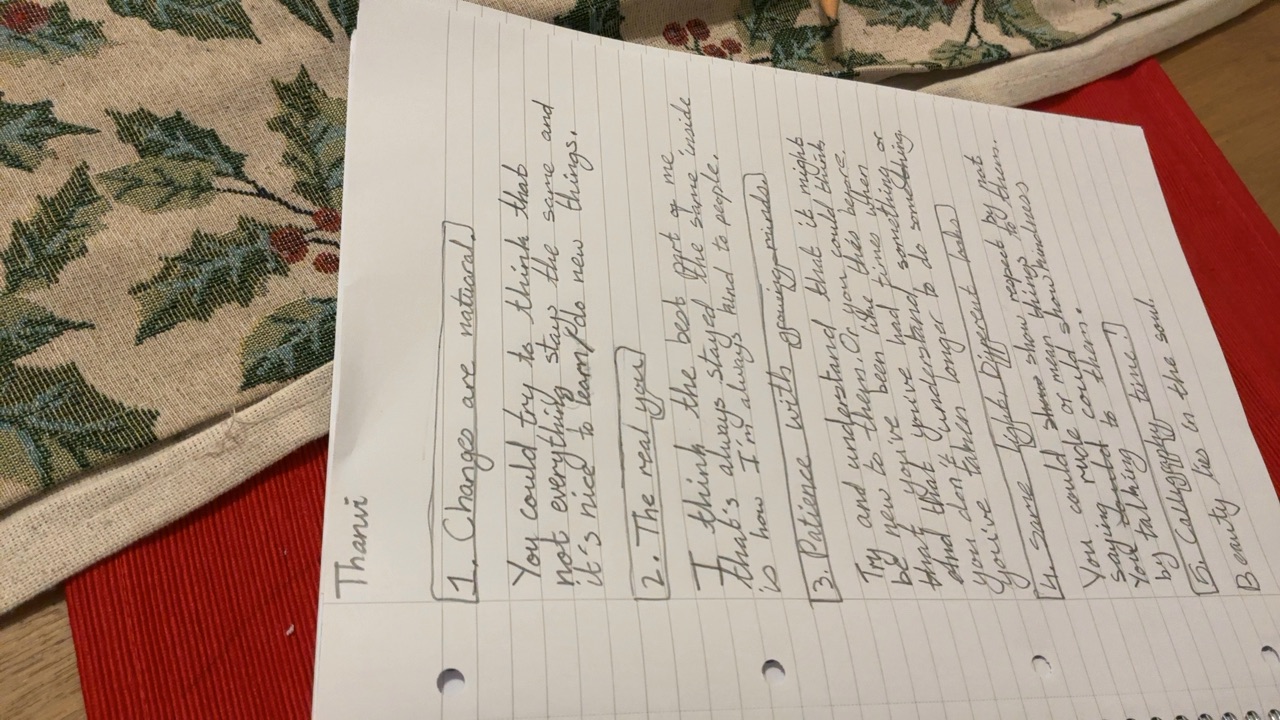 Thanvi
1. Changes are natural.
You could try to think that
not everything stays the same and
it's nice to learn/do new things.
2. The real you
I think the best part of me
that's always stayed the same inside
is how I'm always kind to people.
3. Patience with growing minds
Try and understand that it might
be new to them. Or you could think
that you've been like this before.
and that you've had times when
you don't understand something or
you've taken longer to do something
4. Same light different looks
You could show respect by not
saying rude or mean things to them.
You could show kindness
by talking time.
5. Calligraphy time!
Beauty lies in the soul.